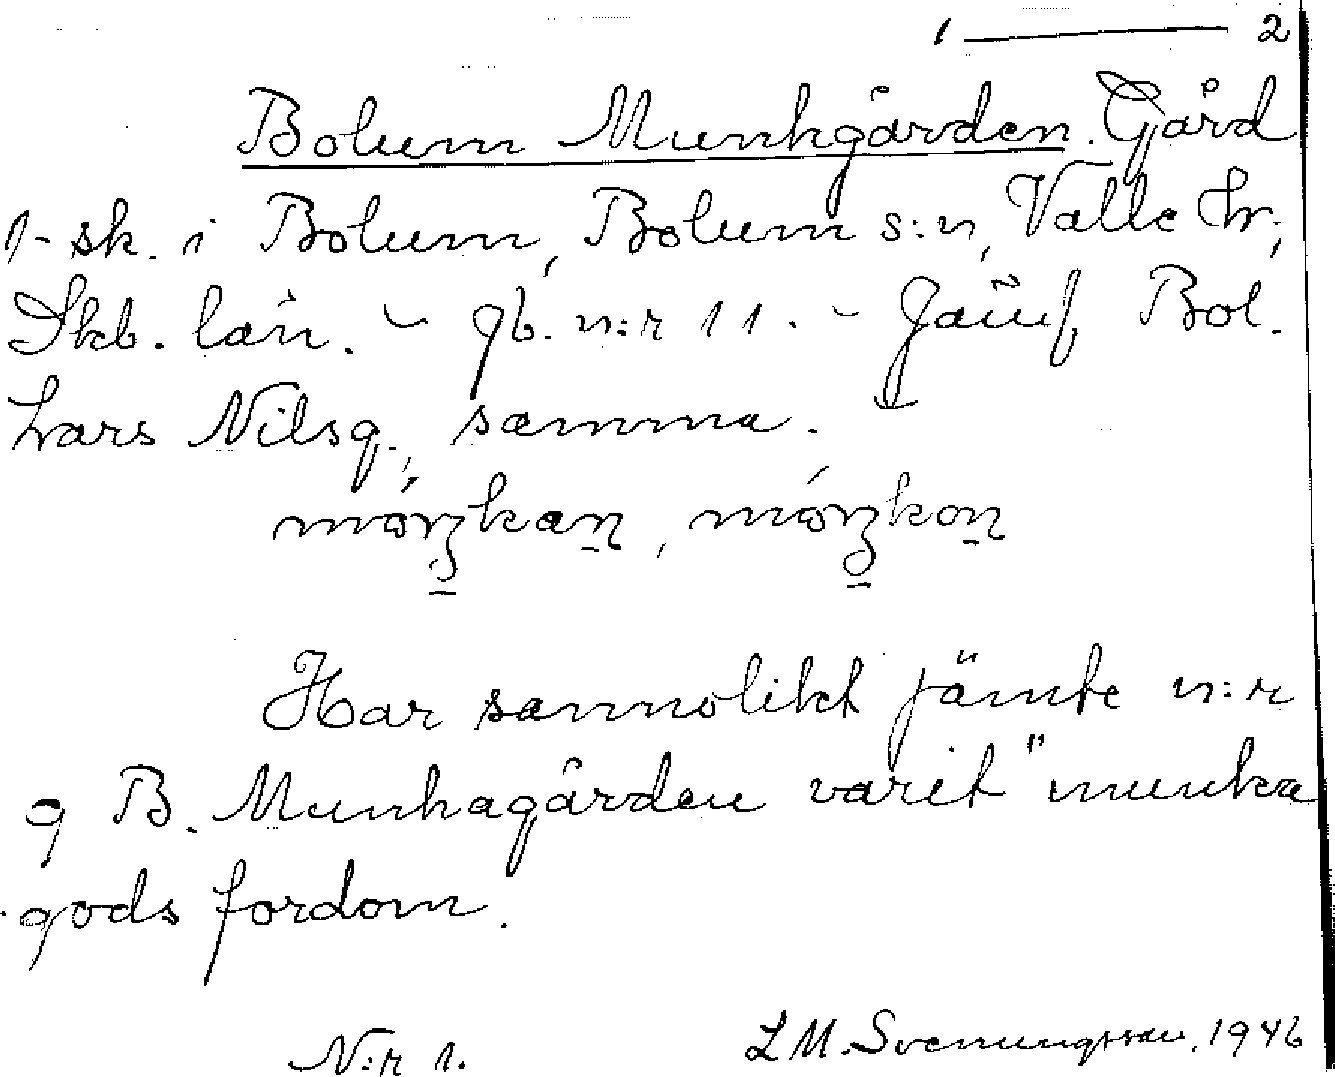 1 — 2
Bolum Munkgården. Gård
1-sk. i Bolum, Bolum s:n, Valle hr;
Skb. län. - gb. n:r 11. - Jämf. Bol.
Lars Nilsg., samma.
Har sannolikt jämte n:r
9 B. Munkagården varit "munka
gods fordom.
N:r 1.
L M. Svenungsson, 1946